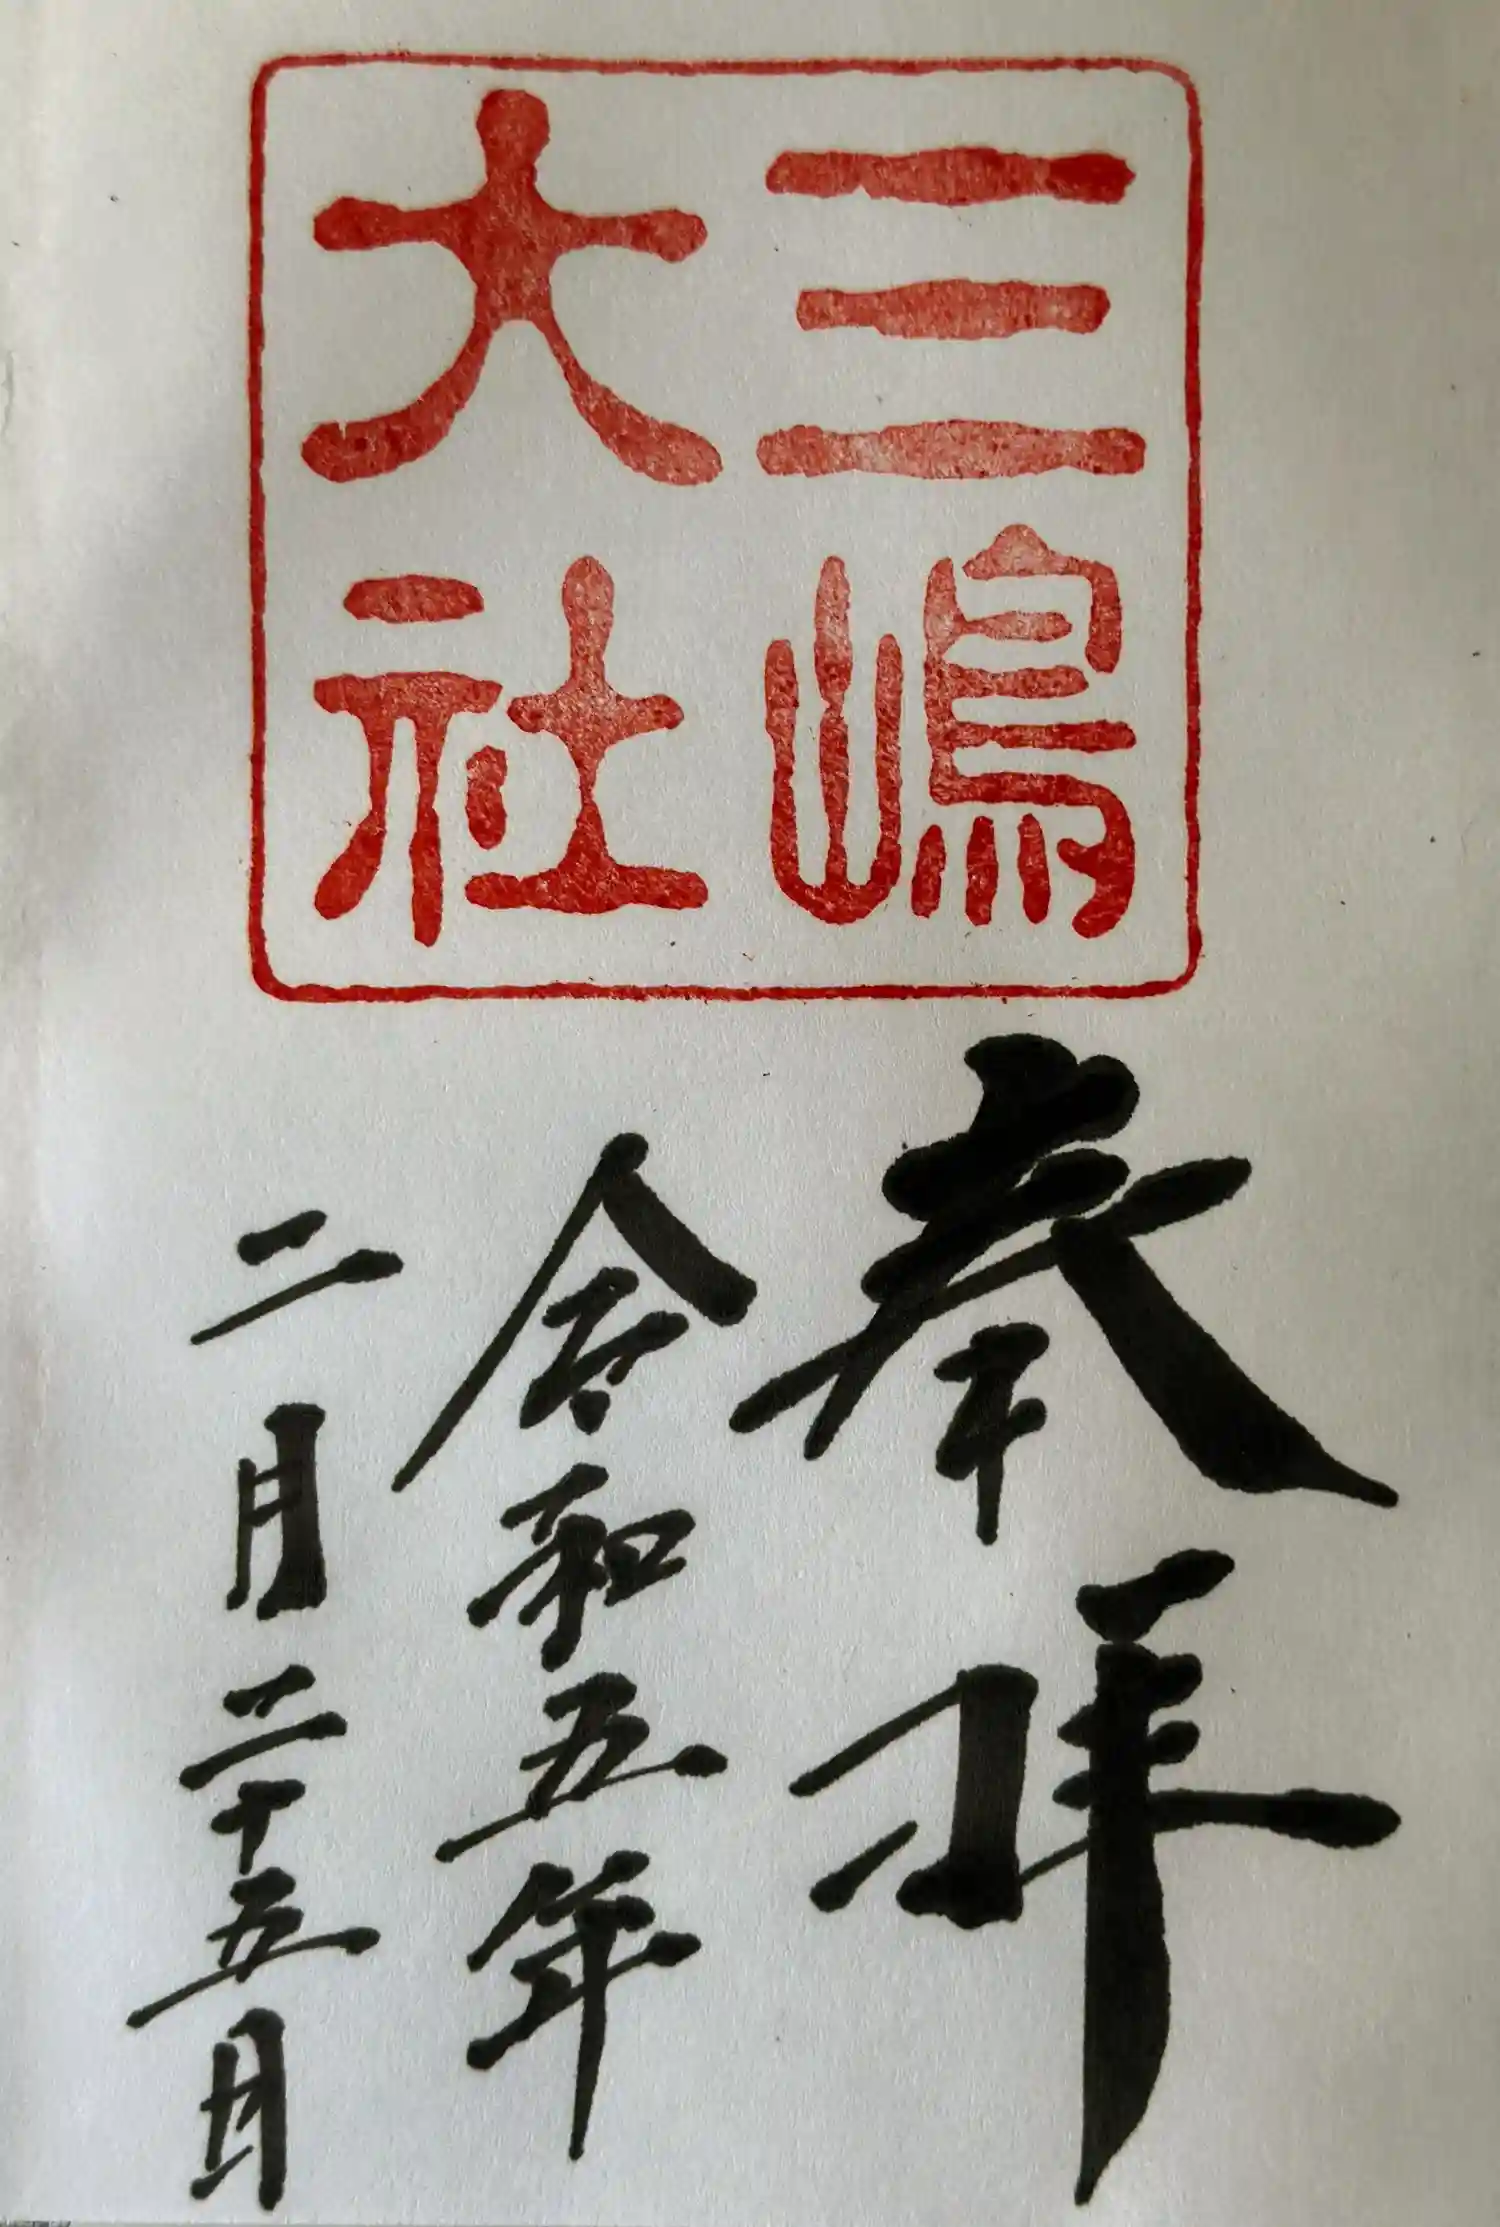 三嶋
大社
奉拝
令和五年
二月二十五日